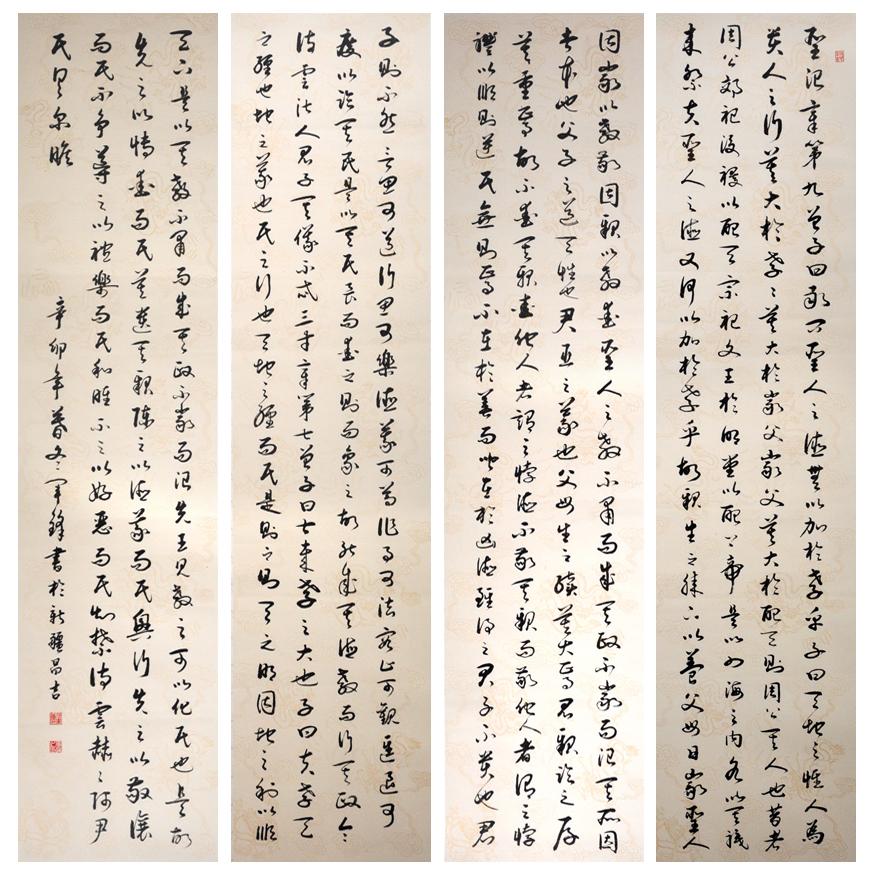 聖治章第九曾子曰敢問聖人之德無以加於孝乎子曰天地之性人為
貴人之行莫大於孝〻莫大於嚴父嚴父莫大於配天則周公其人也昔者
周公郊祀後稷以配天宗祀文王於明堂以配上帝是以四海之內各以其職
來祭夫聖人之德又何以加於孝乎故親生之膝下以養父母日嚴聖人
因嚴以教敬因親以教愛聖人之教不肅而成其政不嚴而治其所因
者本也父子之道天性也君臣之義也父母生之續莫大焉君親臨之厚
莫重焉故不愛其親愛他人者謂之悖德不敬其親而敬他人者謂之悖
禮以順則逆民無則焉不在於善而皆在於凶德雖得之君子不貴也君
子則不然言思可道行思可樂德義可尊作事可法容止可觀進退可
度以臨其民是以其民畏而愛之則而象之故能成其德教而行其政令
詩雲淑人君子其儀不忒三才章第七曾子曰甚哉孝之大也子曰夫孝天
之經也地之義也民之行也天地之經而民是則之則天之明因地之利以順
天下是以其教不肅而成其政不嚴而治先王見教之可以化民也是故
先之以博愛而民莫遺其親陳之以德義而民興行先之以敬讓
而民不爭導之以禮樂而民和睦示之以好惡而民知禁詩雲赫〻師尹
民具爾瞻
辛卯年暮冬軍鋒書於新疆昌吉